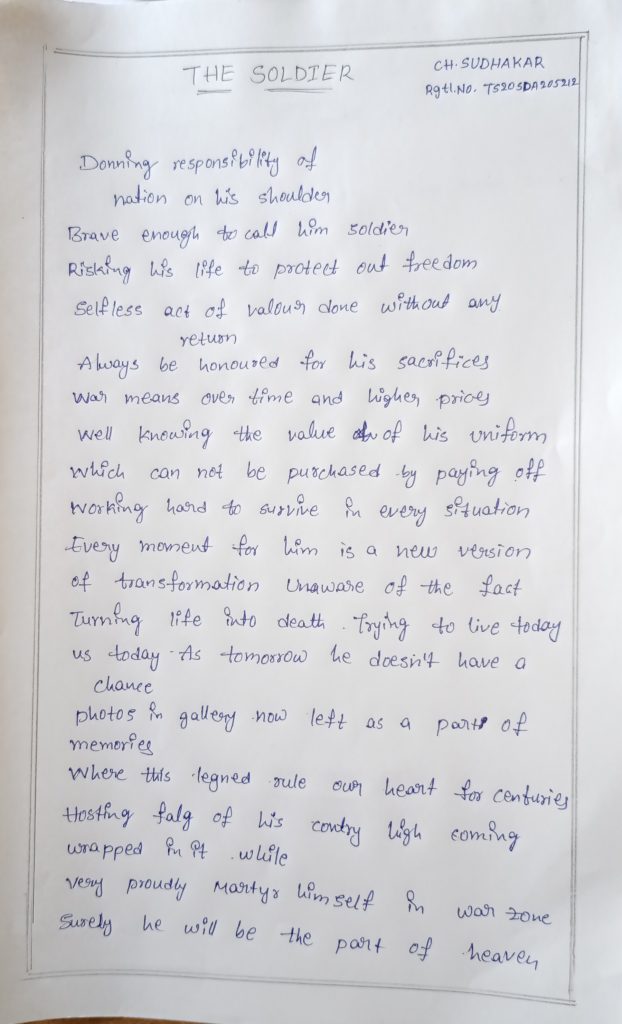 THE SOLDIER
CH. SUDHAKAR
Rgtl.No. TS20SDA205212
Donning responsibility of
nation on his shoulder
Brave enough to call him soldier
Risking his life to protect out freedom
Selfless act of valour done without any
return
Always be honoured for his sacrifices
War means over time and higher prices
Well knowing the value of his uniform
which can not be purchased by paying off
Working hard to survive in every situation
Every moment for him is a new version
of transformation Unaware of the fact
Turning life into death. Trying to live today
us today. As tomorrow he doesn't have a
chance
photos in gallery now left as a part of
memories
Where this legned rule our heart for centuries
Hosting falg of his contry high coming
wrapped in it. while
very proudly Martyr himself in war zone
Surely he will be the part of heaven